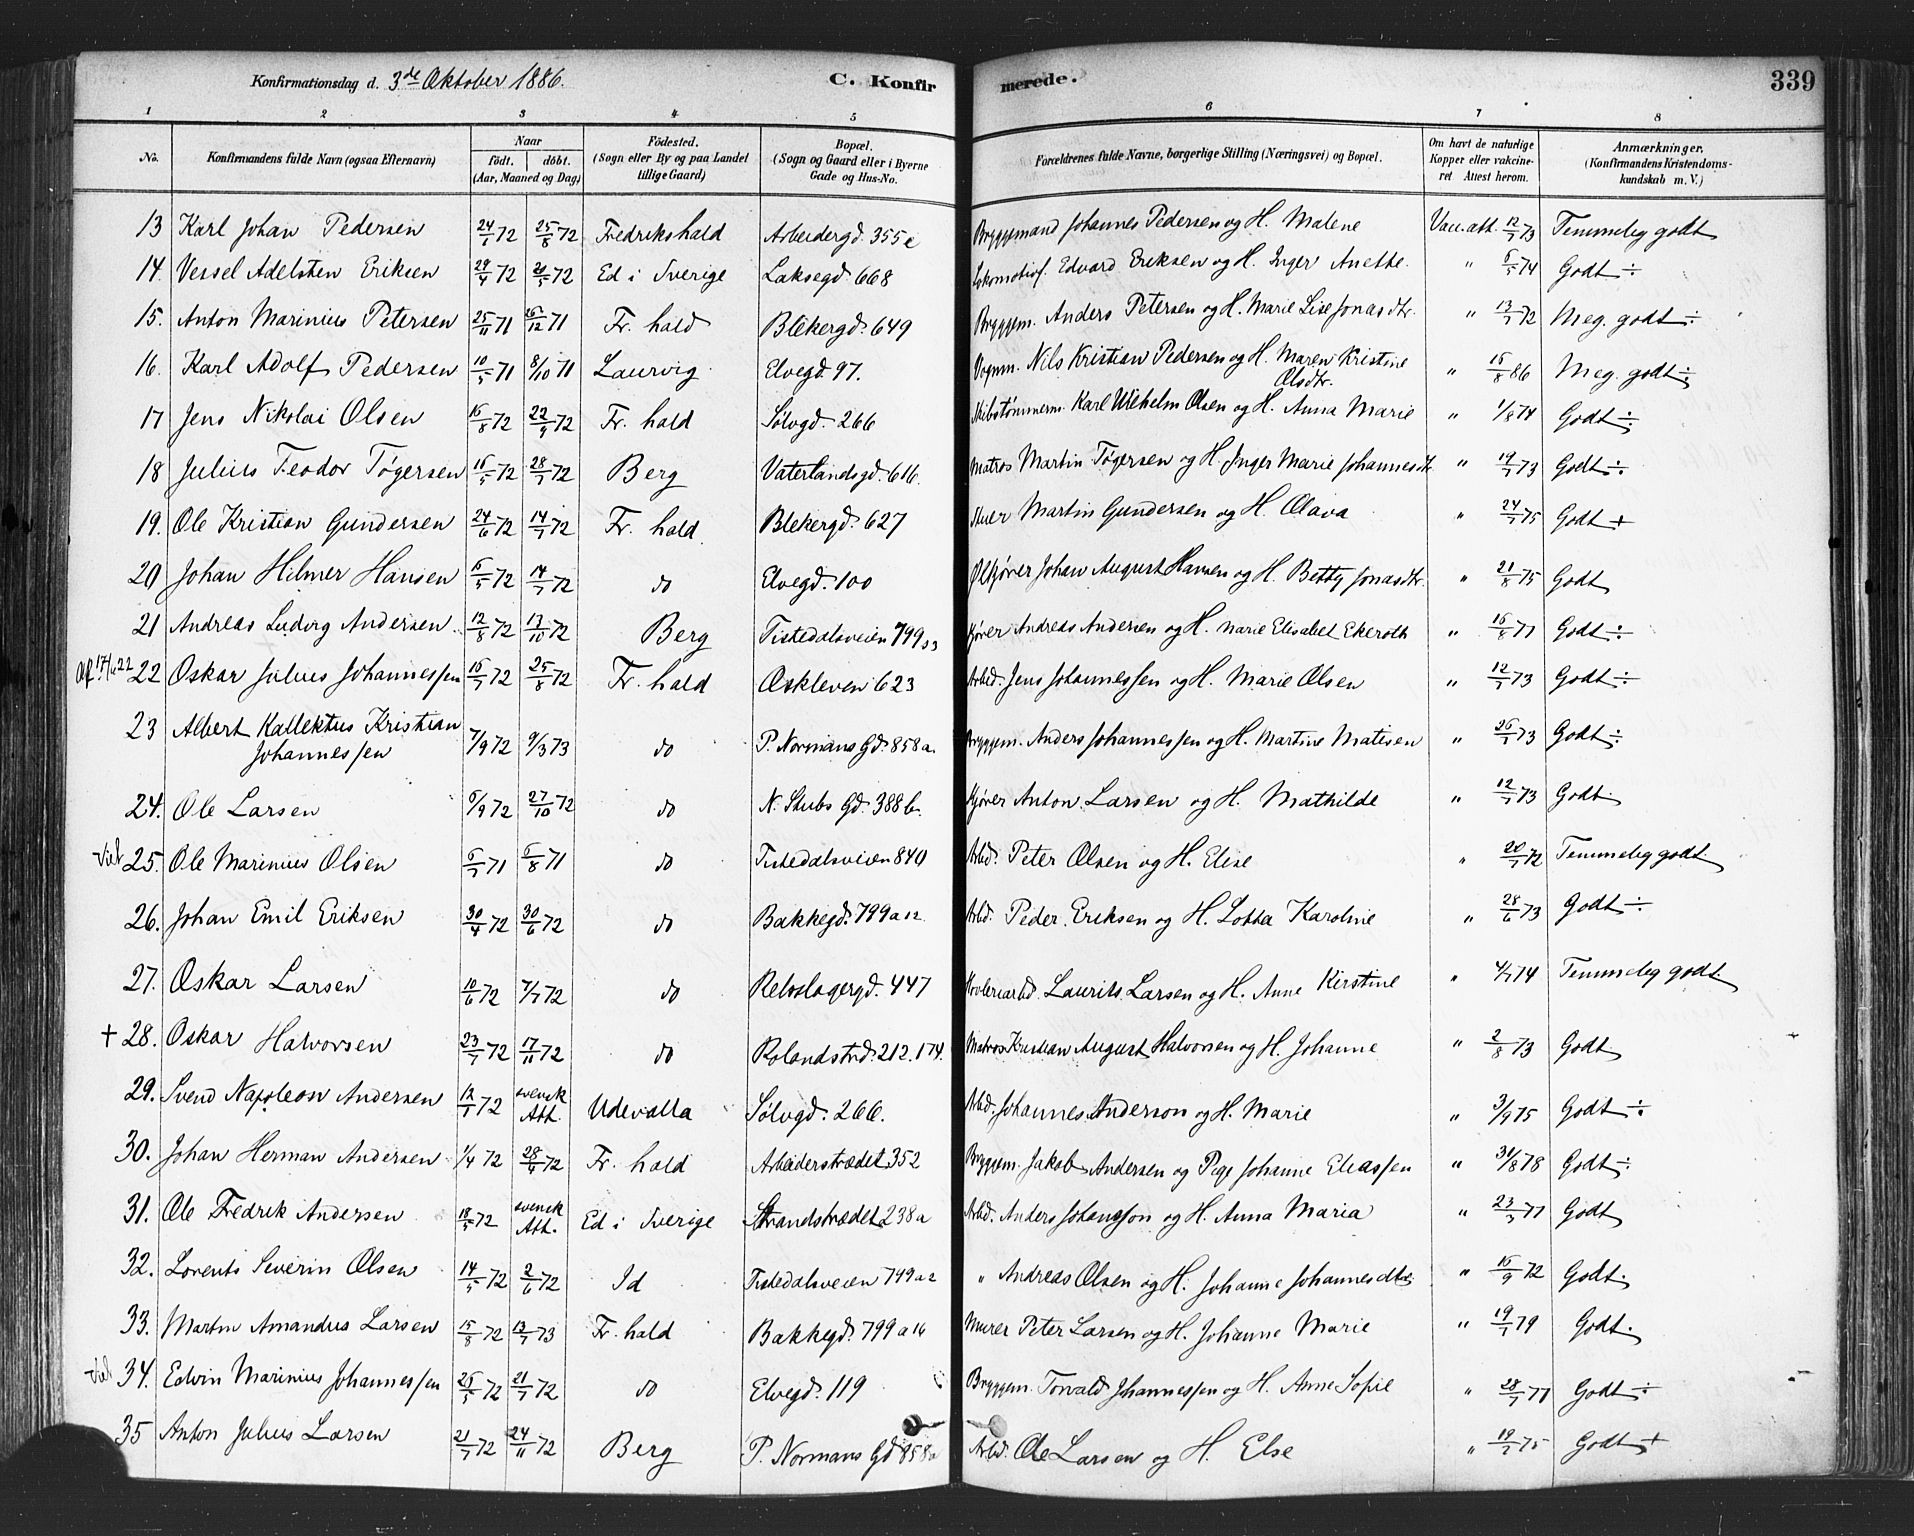 Konfirmationsdag d. 3de Oktober 1886. C. Konfirmerede. 339
1 2 3 4 5 6 7 8
No. Konfirmandens fulde Navn (ogsaa Efternavn) Naar født. døbt. (Aar, Maaned og Dag) Fødested. (Sogn eller By og paa Landet tillige Gaard) Bopæl. (Sogn og Gaard eller i Byerne Gade og Hus-No. Forældrenes fulde Navne, borgerlige Stilling (Næringsvei) og Bopæl. Om havt de naturlige Kopper eller vakcineret Attest herom. Anmærkninger. (Konfirmandens Kristendomskundskab m. V.)
13 Karl Johan Pedersen 72 25/8 72 Fredrikshald Arbeidergd. 355e Bryggemand Johannes Pedersen og H. Malene Vac. att. 73 Temmelig godt
14. Vessel Adelsten Eriksen 29/4 72 72 Ed i Sverige Laksegd. 668 Lokomotivf. Edvard Eriksen og H. Inger Anette. " 74 Godt ÷
15. Anton Marinius Petersen 25/11 71 26/12 71 Fr. hald Blekergd. 649 Bryggem. Anders Petersen og H. Marie Lise Jonasdtr. " 72 Meg. godt ÷
16. Karl Adolf Pedersen 10/5 71 8/10 71 Laurvig Elvegd. 97. Vognm. Nils Kristian Pedersen og H. Maren Kristine Olsdtr. " 86 Meg. godt ÷
17 Jens Nikolai Olsen 72 22/9 72 Fr. hald Sølvgd. 266 Skibstømmerm. Karl Vilhelm Olsen og H. Anna Marie " 1/8 74 Godt ÷
18 Julius Teodor Tøgersen 72 28/7 72 Berg Vaterlandsgd. 616. Matros Martin Tøgersen og H. Inger Marie Johannesdtr " 73 Godt ÷
19. Ole Kristian Gundersen 24/6 72 14/7 72 Fr. hald. Blekergd. 627 Martin Gundersen og H. Olava " 75 Godt +
20 Johan Hilmer Hansen 72 14/7 72 do Elvegd. 100 Ølkjører Johan August Hansen og H. Betty Jonasdtr. " 21/8 75 Godt
21 Andreas Ludvig Andersen 12/8 72 13/10 72 Berg Tistedalsveien 799 Kjører Andreas Andersen og H. Marie Elisabet Ekeroth " Godt ÷
22 Oskar Julius Johannessen 72 25/8 72 Fr. hald Oskleven 623 Arbd. Jens Johannessen og H. Marie Olsen " 12/7 73 Godt ÷
23 Albert Kallektus Kristian Johannessen 7/9 72 9/3 73 do P. Normans Gd. 858a. Bryggem. Anders Johannessen og H. Martine Matisen " 73 Godt ÷
24. Ole Larsen 72 27/10 72 do N. Stubs Gd. 388b. Kjører Anton Larsen og H. Mathilde " 12/7 73 Godt.
Viet 25. Ole Marinius Olsen 71 71 do Tistedalsveien 840 Arbd. Peter Olsen og H. Elise " 20/7 72 Temmelig godt
26. Johan Emil Eriksen 30/4 72 30/6 72 do Bakkegd. 799a12. Arbd. Peder Eriksen og H. Lotta Karoline " 28/6 73 Godt ÷
27. Oskar Larsen 10/6 72 7/7 72 do Rebslagergd. 447 Høvleriarbd. Laurits Larsen og H. Anne Kirstine " 4/7 74 Temmelig godt.
+ 28. Oskar Halvorsen 23/7 72 17/11 72 do Rolandstrd. 212. 174. Matros Kristian August Halvorsen og H. Johanne " 2/8 73 Godt.
29. Svend Napoleon Andersen 72 svensk Att. Udevalla Sølvgd. 266. Arbd. Johannes Anderson og H. Marie " 3/9 75 Godt ÷
30. Johan Herman Andersen 1/4 72 72 Fr. hald Arbeiderstrædet 352 Bryggem. Jakob Andersen og Pige Johanne Eliassen " 31/8 78 Godt ÷
31. Ole Fredrik Andersen 18/5 72 svensk Att. Ed i Sverige Strandstrædet 238a Arbd. Anders Johansson og H. Anna Maria " Godt
32. Lorents Severin Olsen 14/5 72 2/6 72 Id Tistedalsveien 799a2 " Andreas Olsen og H. Johanne Johannesdtr " 72 Godt.
33. Martin Amandus Larsen 15/8 72 73 Fr. hald Bakkegd. 799a16 Murer Peter Larsen og H. Johanne Marie " 79 Godt.
Viet 34. Edvin Marinius Johannessen 72 21/7 72 do Elvegd. 119 Bryggem. Torvald Johannessen og H. Anne Sofie " Godt ÷
35 Anton Julius Larsen 21/7 72 24/11 72 Berg P. Normans Gd 858a Arbd. Ole Larsen og H. Else " 75 Godt +